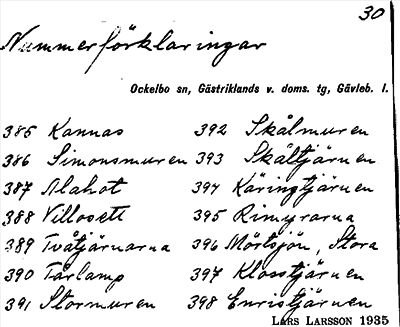 30
Nummerförklaringar
Ockelbo sn, Gästriklands v. doms. tg, Gävleb. l.
385 Kannas
386 Simonsmuren
387 Alahot
388 Villosett
389 Tvåtjärnarna
390 Tärlamp
391 Stormuren
392 Skålmuren
393 Skåltjärnen
394 Käringtjärnen
395 Rimyrarna
396 Mörtsjön, Stora
397 Klosstjärnen
398 Enristjärnen
LARS LARSSON 1935